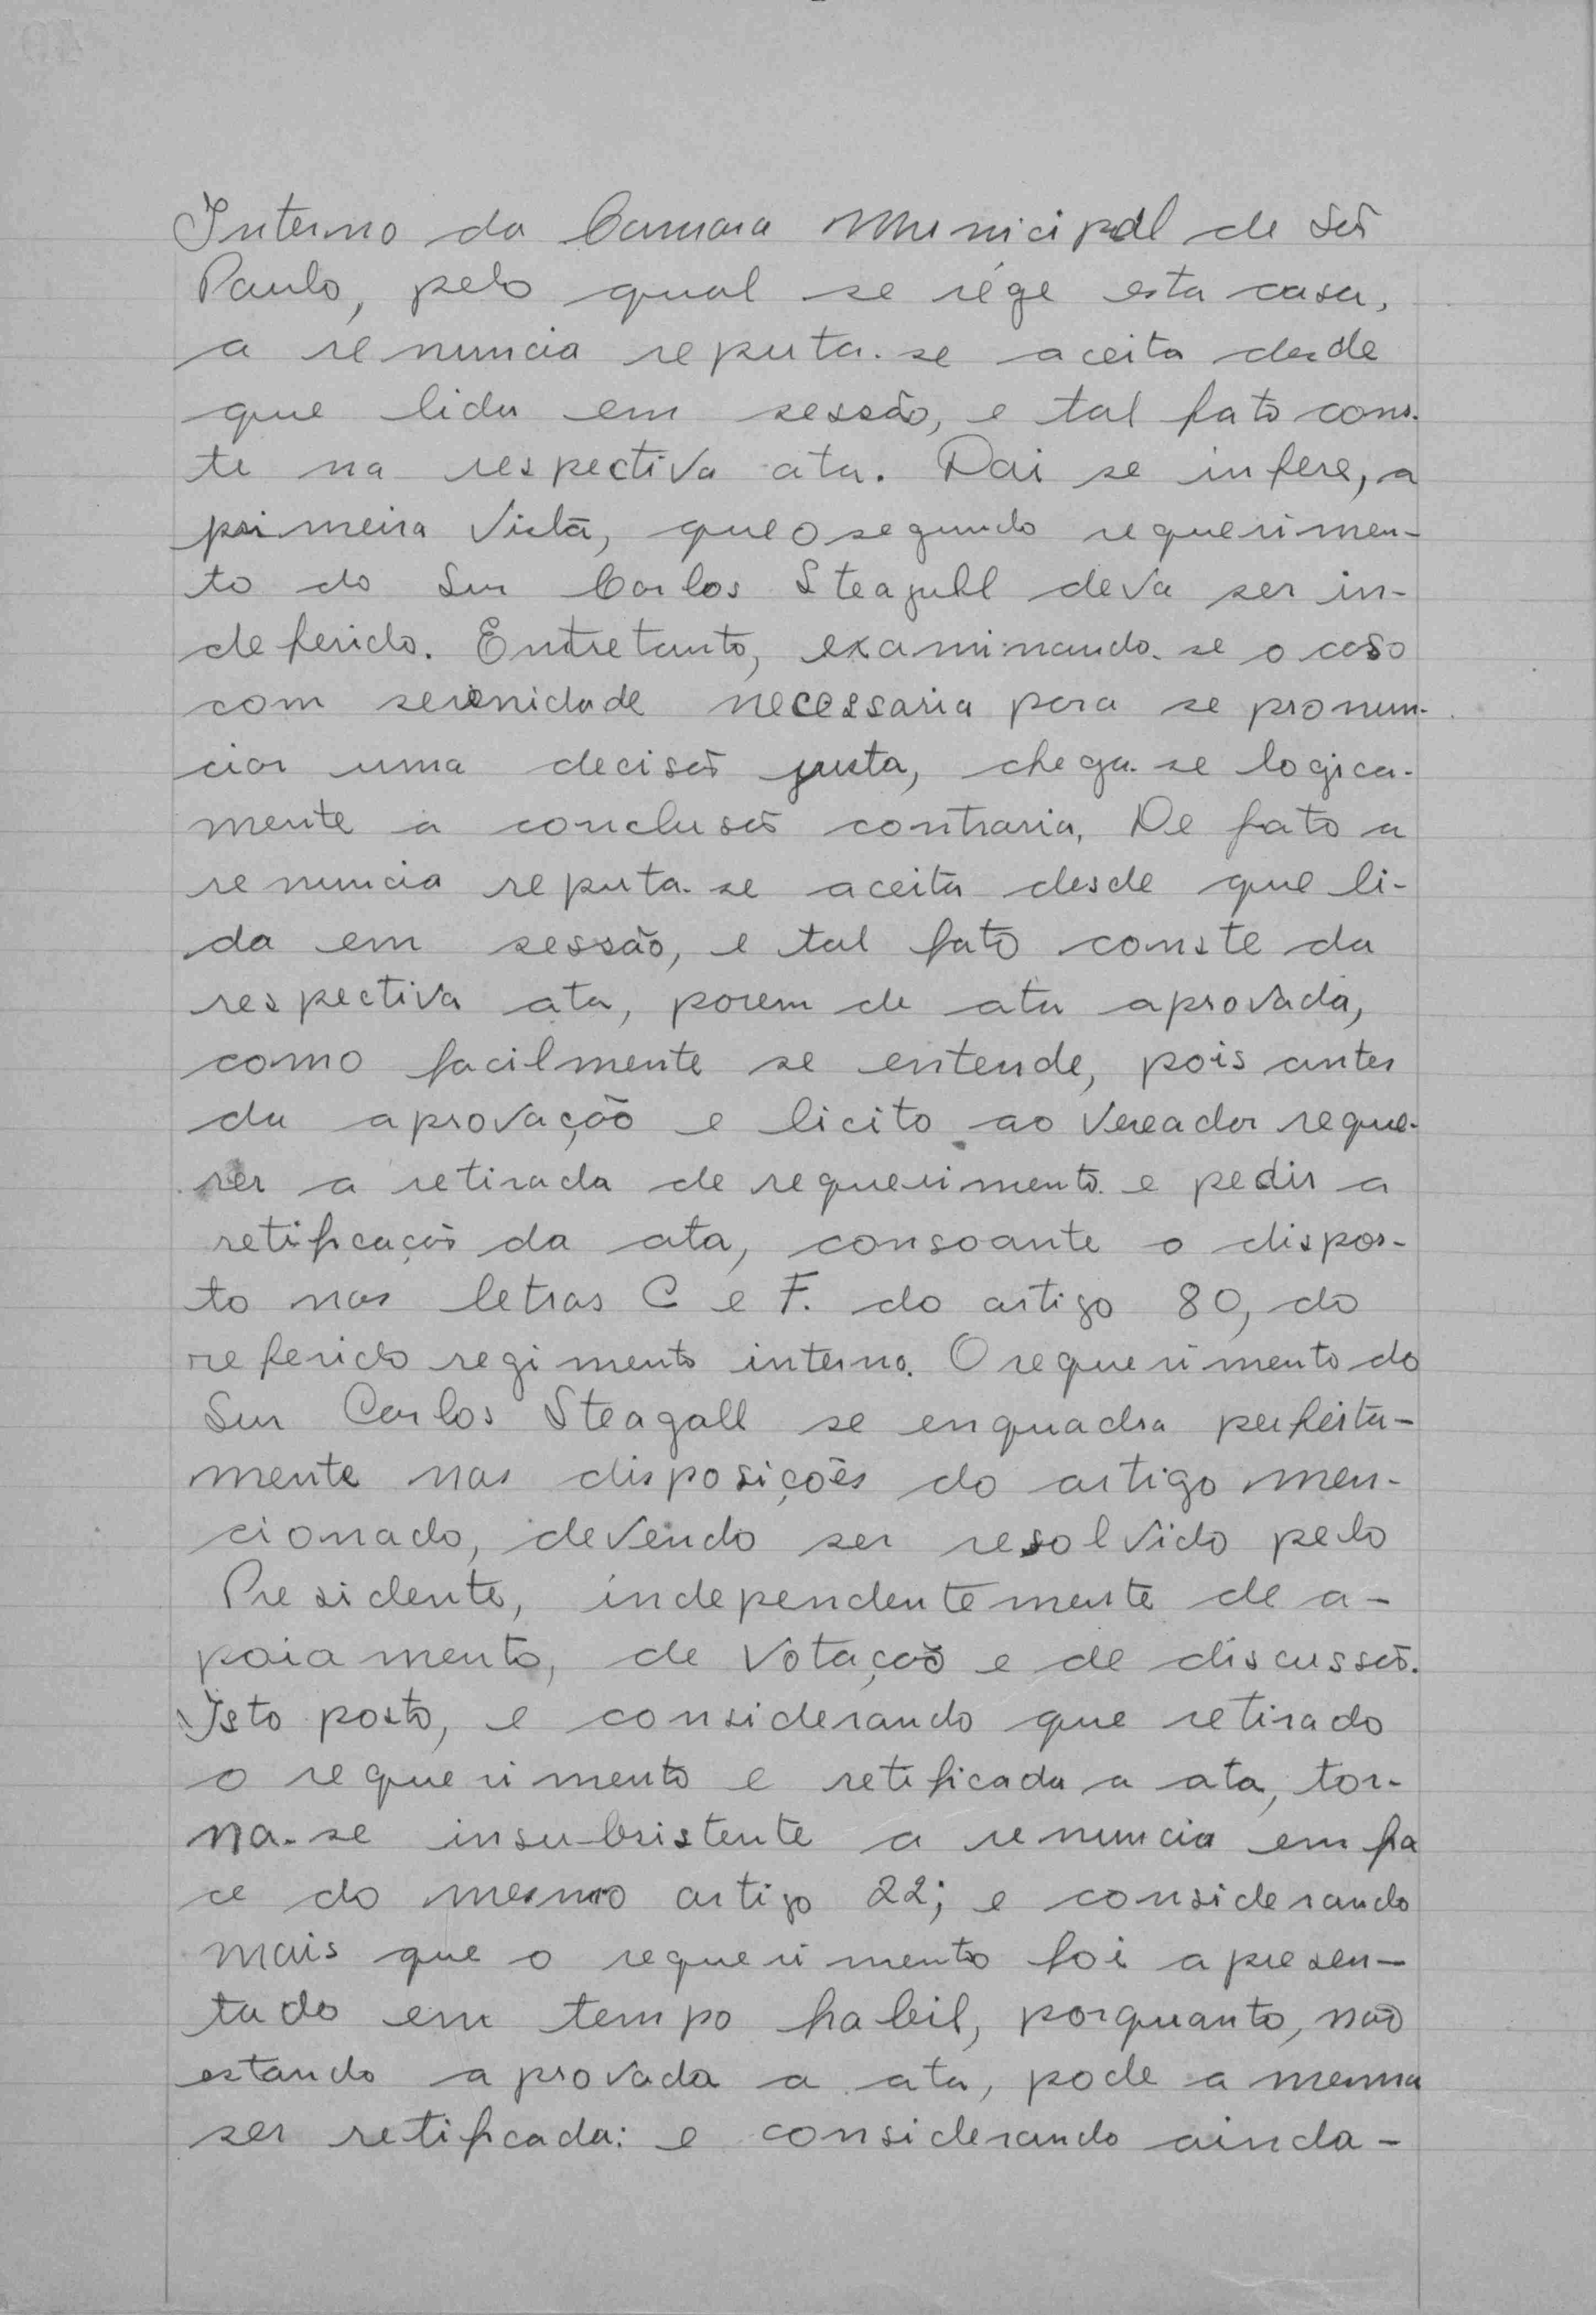 Interno da Camara Municipal de São
Paulo, pelo qual se rége esta casa,
a renuncia reputa-se aceita desde
que lida em sessão, e tal fato cons-
te na respectiva ata. Dai se infere, a
primeira vista, que o segundo requerimen-
to do Snr Carlos Steagall deva ser in-
deferido. Entretanto, examinando-se o caso
com serenidade necessaria para se pronun-
ciar uma decisão justa, chega-se logica-
mente a conclusão contraria. De fato a
renuncia reputa-se aceita desde que li-
da em sessão, e tal fato conste da
respectiva ata, porem de ata aprovada,
como facilmente se entende, pois antes
da aprovação e licito ao Vereador reque-
rer a retirada de requerimento e pedir a
retificação da ata, consoante o dispos-
to nas letras C e F. do artigo 80, do
referido regimento interno. O requerimento do
Snr Carlos Steagall se enquadra perfeita-
mente nas disposições do artigo men-
cionado, devendo ser resolvido pelo
Presidente, independentemente de a-
poiamento, de votação e de discussão.
Isto posto, e considerando que retirado
o requerimento e retificada a ata, tor-
na-se insubsistente a renuncia em fa
ce do mesmo artigo 22; e considerando
mais que o requerimento foi apresen-
tado em tempo habil, porquanto, não
estando aprovada a ata, pode a mesma
ser retificada: e considerando ainda-